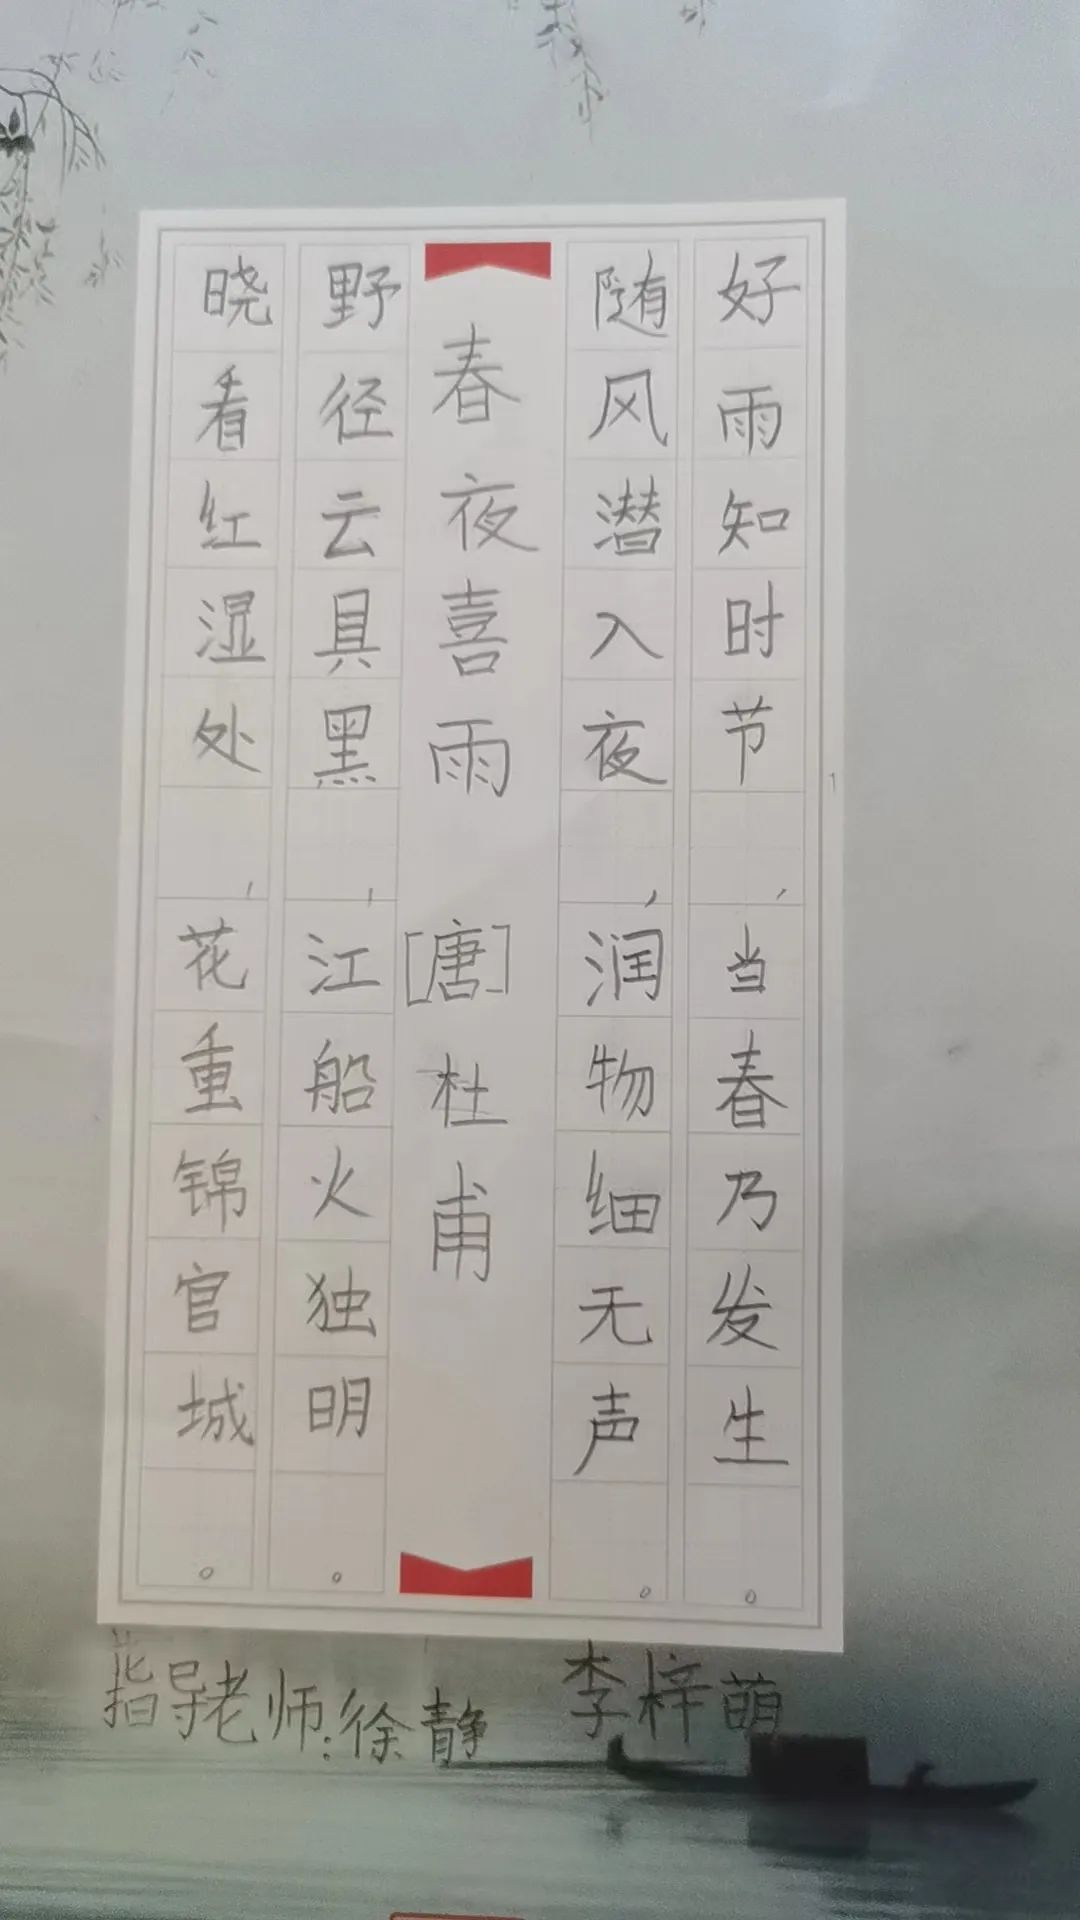 好雨知时节，当春乃发生。
随风潜入夜，润物细无声。
春夜喜雨 [唐]杜甫
野径云具黑，江船火独明。
晓看红湿处，花重锦官城。
指导老师:徐静 李梓萌